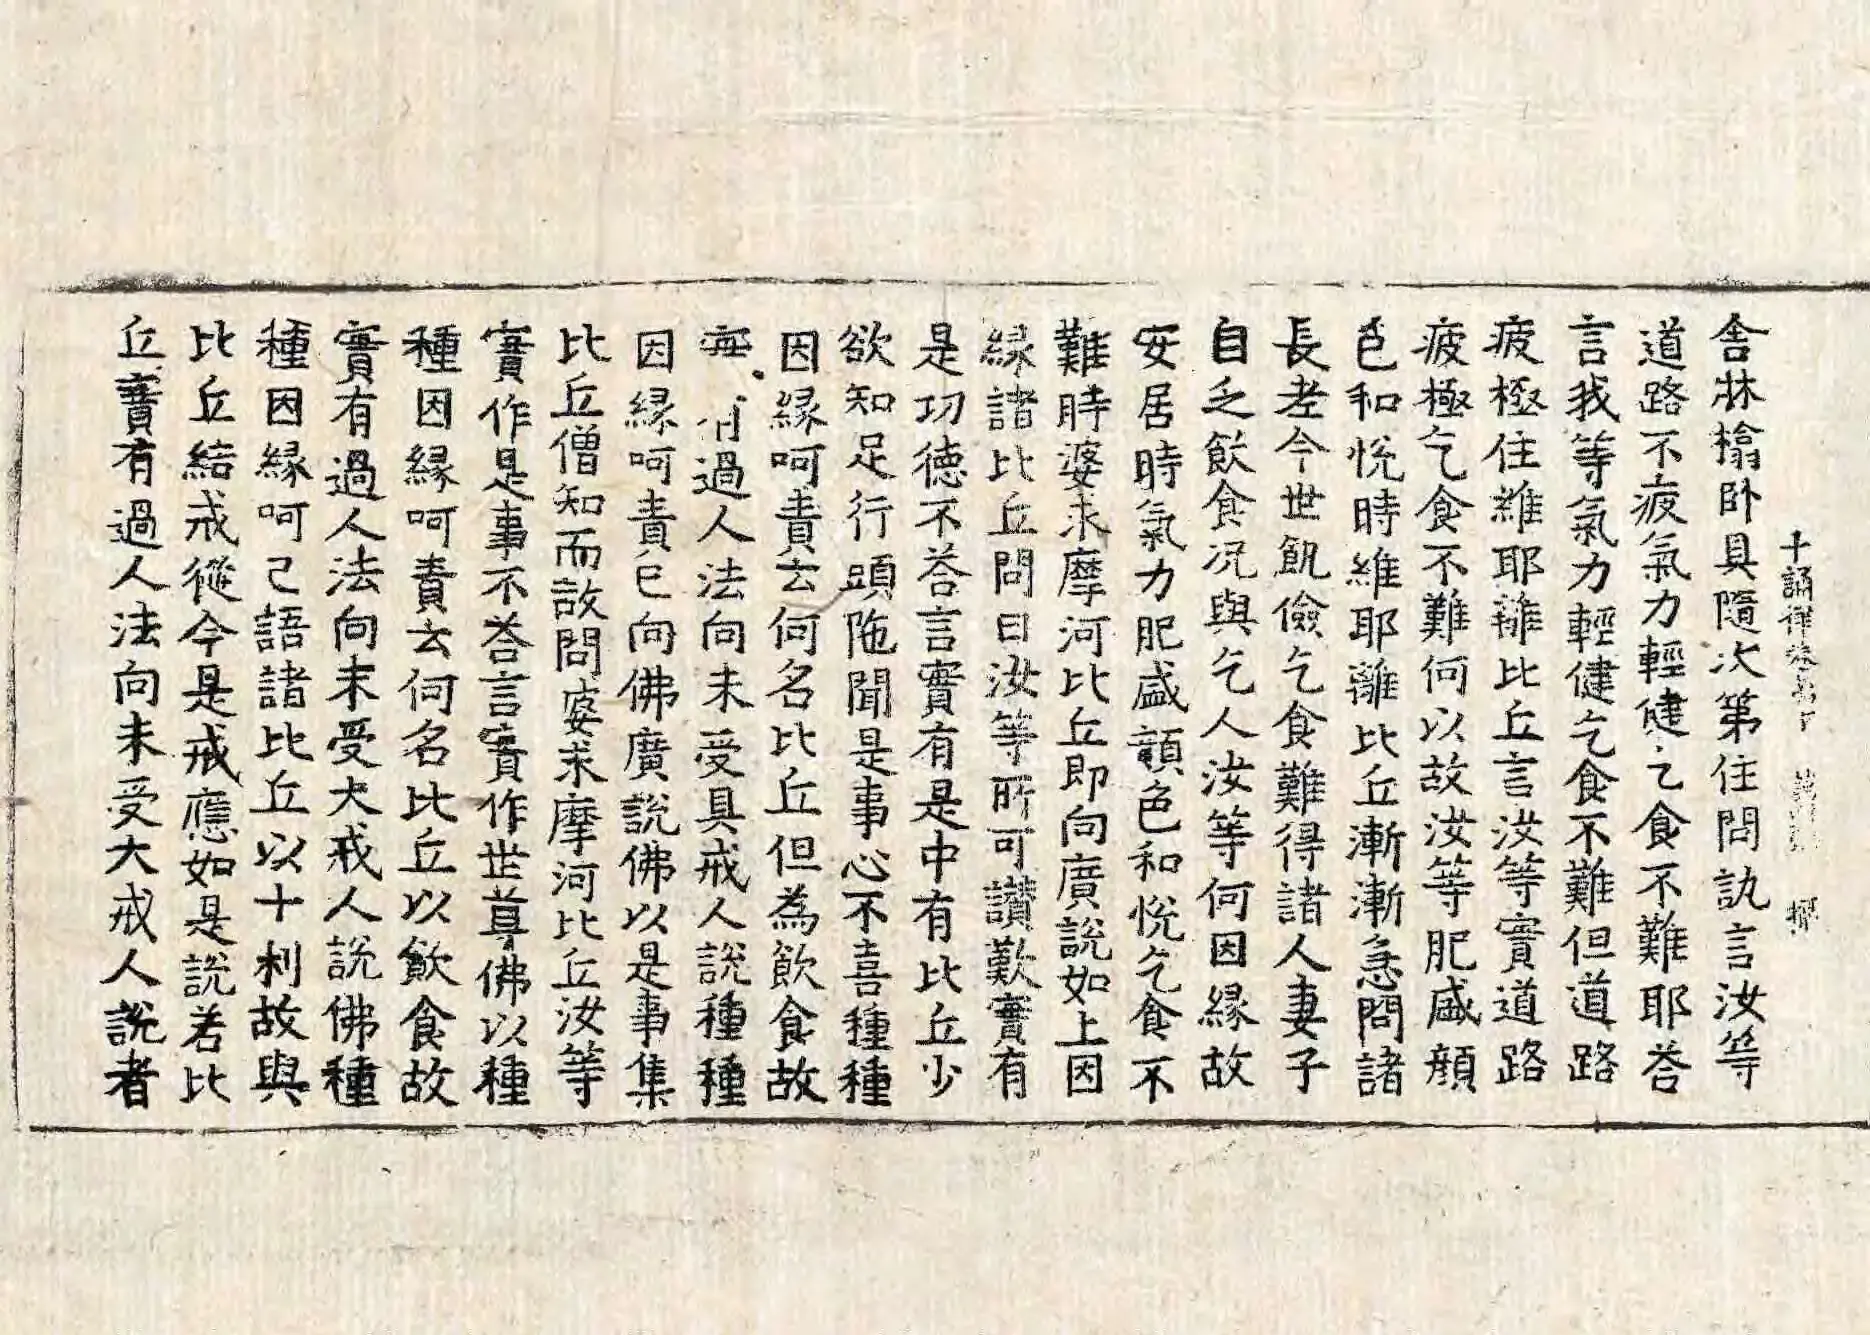 十誦律卷第十
舍林榻卧具隨次第住問訊言汝等
道路不疲氣力輕健乞食不難耶荅
言我等氣力輕健乞食不難但道路
疲極住維耶離比丘言汝等實道路
疲極乞食不難何以故汝等肥盛顔
色和悅時維耶離比丘漸漸急問諸
長老今世飢儉乞食難得諸人妻子
自乏飲食况與乞人汝等何因緣故
安居時氣力肥盛顔色和悅乞食不
難時婆求摩河比丘即向廣說如上因
緣諸比丘問曰汝等所可讃歎實有
是功德不荅言實有是中有比丘少
欲知足行頭陁聞是事心不喜種種
因緣呵責云何名比丘但為飲食故
過人法向未受具戒人說種種
因緣呵責已向佛廣說佛以是事集
比丘僧知而故問婆求摩河比丘汝等
實作是事不荅言實作世尊佛以種
種因緣呵責云何名比丘以飲食故
實有過人法向未受大戒人說佛種
種因緣呵已語諸比丘以十利故與
比丘結戒從今是戒應如是說若比
丘實有過人法向未受大戒人說者